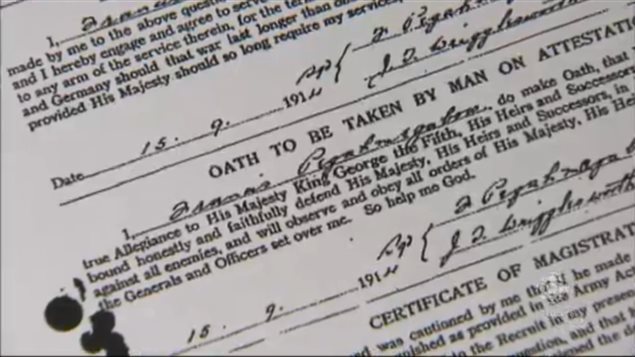 I, Francis Pegahmagabow
made by me to the above questions
and I hereby engage and agree to serve
to any arm of the service therein, for the term
and Germany should that war last longer than
provided His Majesty should so long require my services,
F Pegah
J. F. Wrigglesworth
15. 9. 1914
OATH TO BE TAKEN BY MAN ON ATTESTATI
Date
I, Francis Pegahmagabow, do make Oath, that
true Allegiance to His Majesty King George the Fifth, His Heirs and Successors
bound honestly and faithfully defend His Majesty, His Heirs and Successors, in
against all enemies, and will observe and obey all orders of His Majesty, His Hei
the Generals and Officers set over me. So help me God.
F Pegahmagab
J. F. Wrigglesworth
15. 9. 1914
CERTIFICATE OF MAGISTRAT
d was cautioned by me that if he made
unished as provided in the Army Act
the Recruit in my presen
question, and that